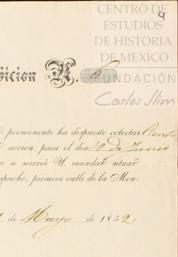 CENTRO DE
ESTUDIOS
DE HISTORIA
DE MEXICO
FUNDACIÓN
Carlos Slim
4
dicion N. 6
permanente ha dispuesto colectar
accion, para el dia 10 de Junio
se servirá U. mandar situar
spacho, primera calle de la Mon-
de Mayo de 1832